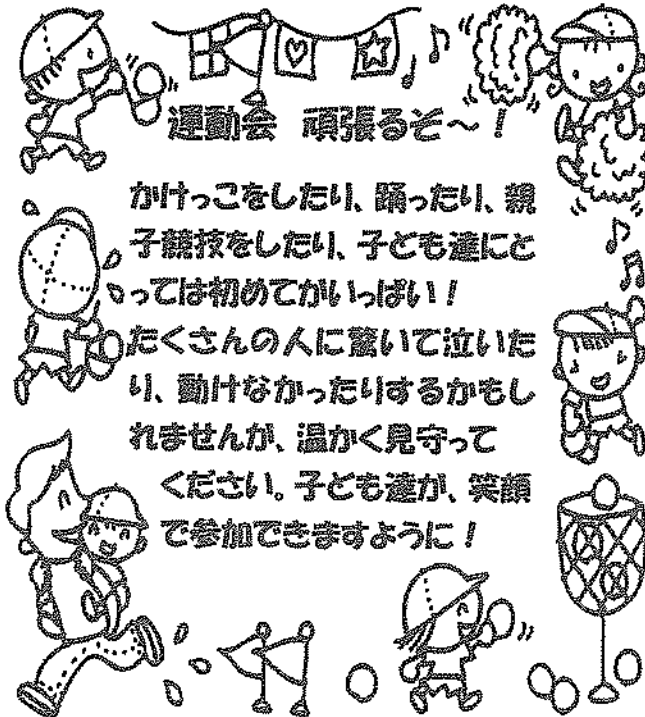 運動会 頑張るぞ〜！
かけっこをしたり、踊ったり、親
子競技をしたり、子ども達にと
っては初めてがいっぱい！
たくさんの人に驚いて泣いた
り、動けなかったりするかもし
れませんが、温かく見守って
ください。子ども達が、笑顔
で参加できますように！